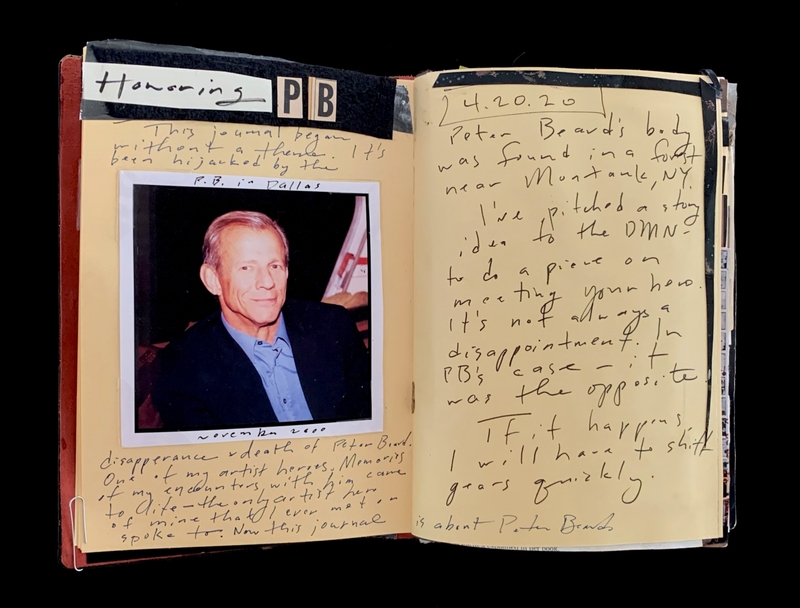 Honoring PB
This journal began
without a theme. It's
been hijacked by the
P.B. in Dallas
November 2000
disapperance & death of Peter Beard.
One of my artist heroes. Memories
of my encounters with him came
to life — the only artist hero
of mine that I ever met or
spoke to. Now this journal
4.20.20
Peter Beard's body
was found in a forest
near Montauk, NY.
I've pitched a story
idea to the DMN -
to do a piece on
meeting your hero.
It's not always a
disappointment. In
PB's case — it
was the opposite
If it happens,
I will have to shift
gears quickly.
is about Peter Beard